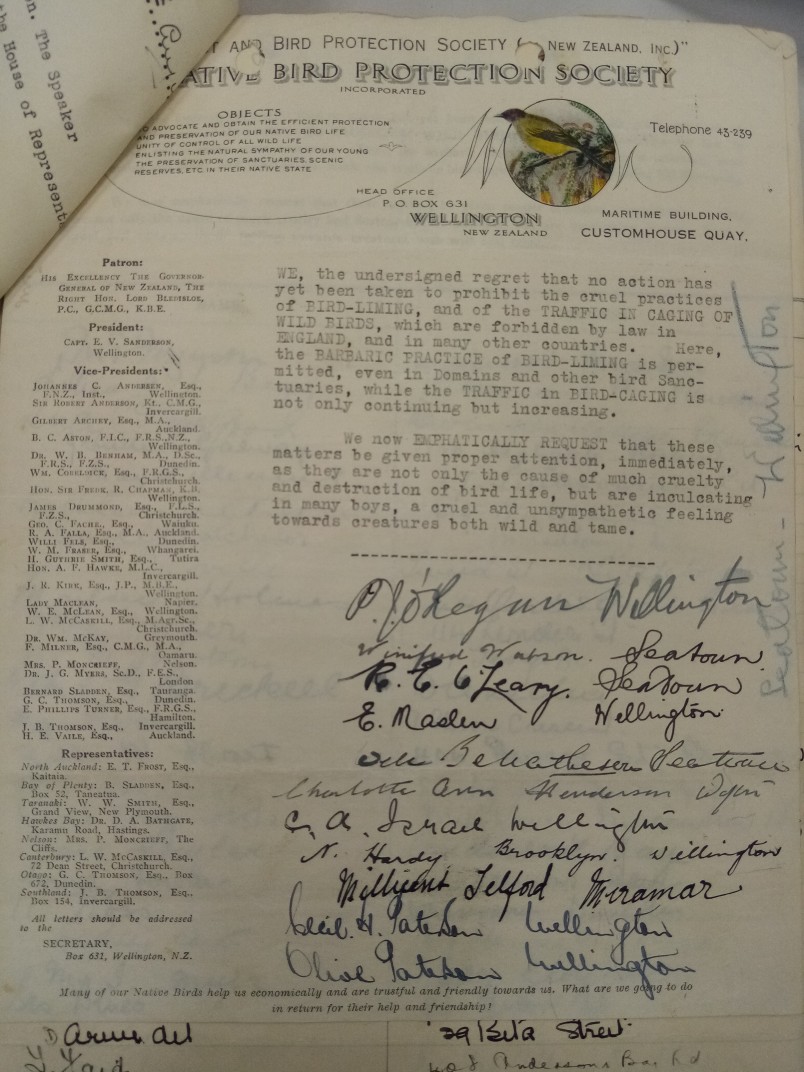 n. The Speaker
the House of Represent
T AND BIRD PROTECTION SOCIETY ( NEW ZEALAND, INC.)"
NATIVE BIRD PROTECTION SOCIETY
INCORPORATED
OBJECTS
TO ADVOCATE AND OBTAIN THE EFFICIENT PROTECTION
AND PRESERVATION OF OUR NATIVE BIRD LIFE
UNITY OF CONTROL OF ALL WILD LIFE
ENLISTING THE NATURAL SYMPATHY OF OUR YOUNG
THE PRESERVATION OF SANCTUARIES, SCENIC
RESERVES, ETC IN THEIR NATIVE STATE
Telephone 43-239
HEAD OFFICE
P.O. BOX 631
WELLINGTON
NEW ZEALAND
MARITIME BUILDING,
CUSTOMHOUSE QUAY,
Patron:
HIS EXCELLENCY THE GOVERNOR-
GENERAL OF NEW ZEALAND, THE
RIGHT HON. LORD BLEDISLOE,
P.C., G.C.M.G., K.B.E.
President:
CAPT. E. V. SANDERSON,
Wellington.
Vice-Presidents:
JOHANNES C. ANDERSEN, Esq.,
F.N.Z., Inst., Wellington.
SIR ROBERT ANDERSON, Kt., C.M.G.,
Invercargill.
GILBERT ARCHEY, Esq., M.A.,
Auckland.
B. C. ASTON, F.I.C., F.R.S.,N.Z.,
Wellington.
DR. W. B. BENHAM, M.A., D.Sc.,
F.R.S., F.Z.S., Dunedin.
WM. COBELDICK, Esq., F.R.G.S.,
Christchurch.
HON. SIR FREDK. R. CHAPMAN, K.B,
Wellington.
JAMES DRUMMOND, Esq., F.L.S.,
F.Z.S., Christchurch.
GEO. C. FACHE, Esq., Waiuku.
R. A. FALLA, Esq., M.A., Auckland.
WILLI FELS, Esq., Dunedin.
W. M. FRASER, Esq., Whangarei.
H. GUTHRIE SMITH, Esq., Tutira
HON. A. F. HAWKE, M.L.C.,
Invercargill.
J. R. KIRK, Esq., J.P., M.B.E.,
Wellington.
LADY MACLEAN, Napier.
W. E. MCLEAN, Esq., Wellington.
L. W. MCCASKILL, Esq., M.Agr.Sc.,
Christchurch.
DR. WM. MCKAY, Greymouth.
F. MILNER, Esq., C.M.G., M.A.,
Oamaru.
MRS. P. MONCRIEFF, Nelson.
DR. J. G. MYERS, Sc.D., F.E.S.,
London
BERNARD SLADDEN, Esq., Tauranga.
G. C. THOMSON, Esq., Dunedin.
E. PHILLIPS TURNER, Esq., F.R.G.S.,
Hamilton.
J. B. THOMSON, Esq., Invercargill.
H. E. VAILE, Esq., Auckland.
Representatives:
North Auckland: E. T. FROST, Esq.,
Kaitaia.
Bay of Plenty: B. SLADDEN, Esq.,
Box 52, Taneatua.
Taranaki: W. W. SMITH, Esq.,
Grand View, New Plymouth.
Hawkes Bay: DR. D. A. BATHGATE,
Karamu Road, Hastings.
Nelson: MRS. P. MONCRIEFF, The
Cliffs.
Canterbury: L. W. MCCASKILL, Esq.,
72 Dean Street, Christchurch.
Otago: G. C. THOMSON, Esq., Box
672, Dunedin.
Southland: J. B. THOMSON, Esq.,
Box 154, Invercargill.
All letters should be addressed
to the
SECRETARY,
Box 631, Wellington, N.Z.
WE, the undersigned regret that no action has
yet been taken to prohibit the cruel practices
of BIRD-LIMING, and of the TRAFFIC IN CAGING OF
WILD BIRDS, which are forbidden by law in
ENGLAND, and in many other countries. Here,
the BARBARIC PRACTICE of BIRD-LIMING is per-
mitted, even in Domains and other bird Sanc-
tuaries, while the TRAFFIC in BIRD-CAGING is
not only continuing but increasing.
We now EMPHATICALLY REQUEST that these
matters be given proper attention, immediately,
as they are not only the cause of much cruelty
and destruction of bird life, but are inculcating
in many boys, a cruel and unsympathetic feeling
towards creatures both wild and tame.
Seatoun - Wellington
P. J. O'Regan Wellington
Winifred Watson. Seatoun
R. E. O'Leary. Seatoun
E. Maslen Wellington
Matheson Seatoun
Charlotte Ann Henderson Wgtn
C. A. Israel Wellington
N. Hardy Brooklyn. Wellington
Millicent Telford Miramar
Cecil. H. Paterson Wellington
Olive Paterson Wellington
Many of our Native Birds help us economically and are trustful and friendly towards us. What are we going to do
in return for their help and friendship!
29 Street
Anderson's Bay Rd